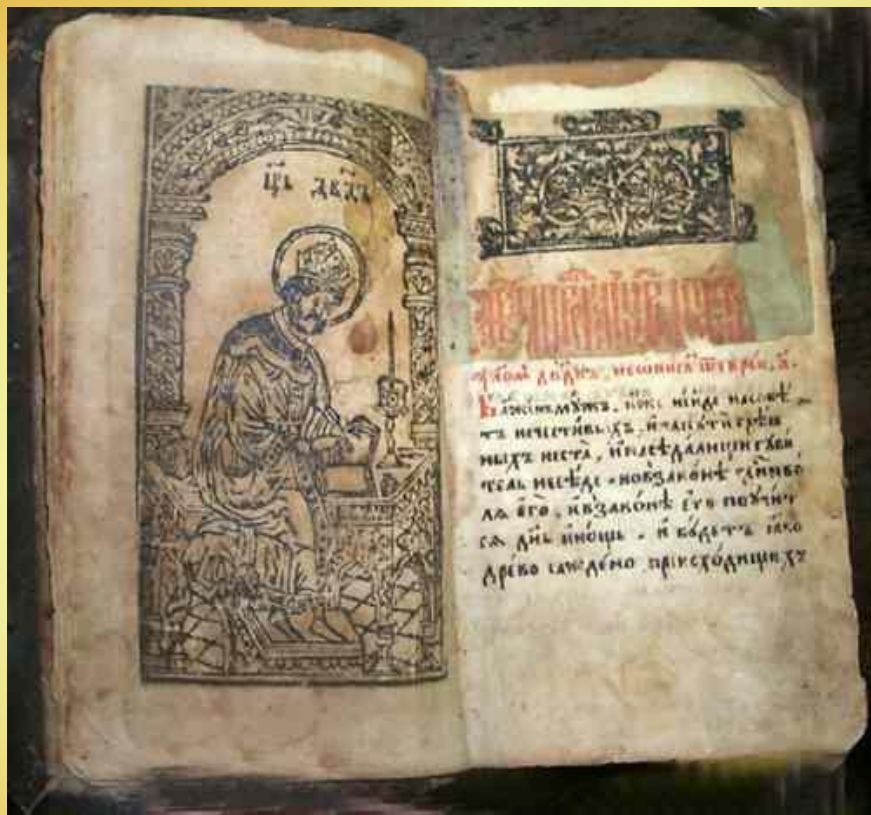 ц҃ь дв҃дъ
Блаже́нъ мꙋ́жъ, иже не и́де на совѣ́
тъ нечести́выхъ, и҆ на пꙋти́ грѣш
ныхъ не ста̀, и҆ на сѣда́лищи гꙋби́
тель не сѣ́де. но въ зако́нѣ гдⷭ҇ни во
лѧ є҆гѡ̀, и҆ въ зако́нѣ є҆гѡ̀ поꙋчи́т
сѧ дн҃ь и҆ но́щь. и҆ бꙋ́детъ ꙗ҆́ко
дре́во сажде́но при исхо́дищихъ